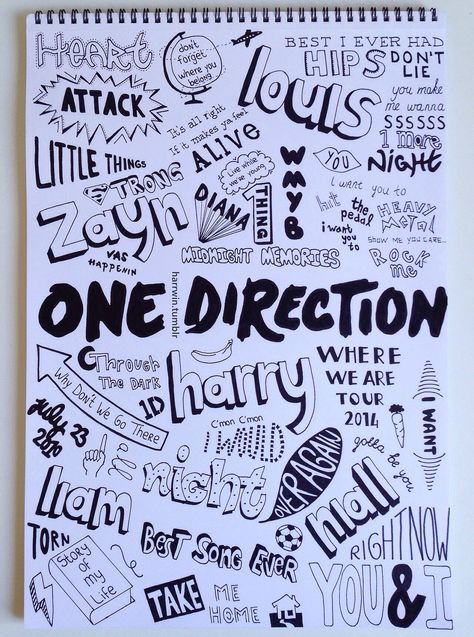 Heart
ATTACK
don't
forget
where you
belong
louis
BEST I EVER HAD
HIPS DON'T
LIE
you make
me wanna
SSSSSS
1 more
NIGHT
It's all right
If it makes ya feel
ALIVE
LITTLE THINGS
STRONG
Zayn
VAS
HAPPENIN
DIANA
Live while
we're young
1
THING
WMYB
YOU
I want you to
hit the
pedal
HEAVY
METAL
i want
you to
SHOW ME YOU CARE...
ROCK
me
MIDNIGHT MEMORIES
ONE DIRECTION
harrwin.tumblr
Through
The Dark
Why Don't We Go There
1D
harry
WHERE
WE ARE
TOUR
2014
I WANT
july 23
2010
C'mon C'mon
I WOULD
OVER AGAIN
gotta be you
night
liam
niall
TORN
Story
of my
Life
BEST SONG EVER
RIGHT NOW
TAKE ME
HOME
YOU & I